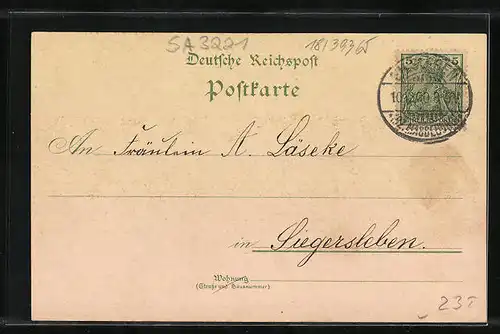 SA3221
18/39365
Deutsche Reichspost
Postkarte
5 5
An Fräulein A. Läseke
in Siegersleben.
Wohnung
(Straße und Hausnummer)
23T